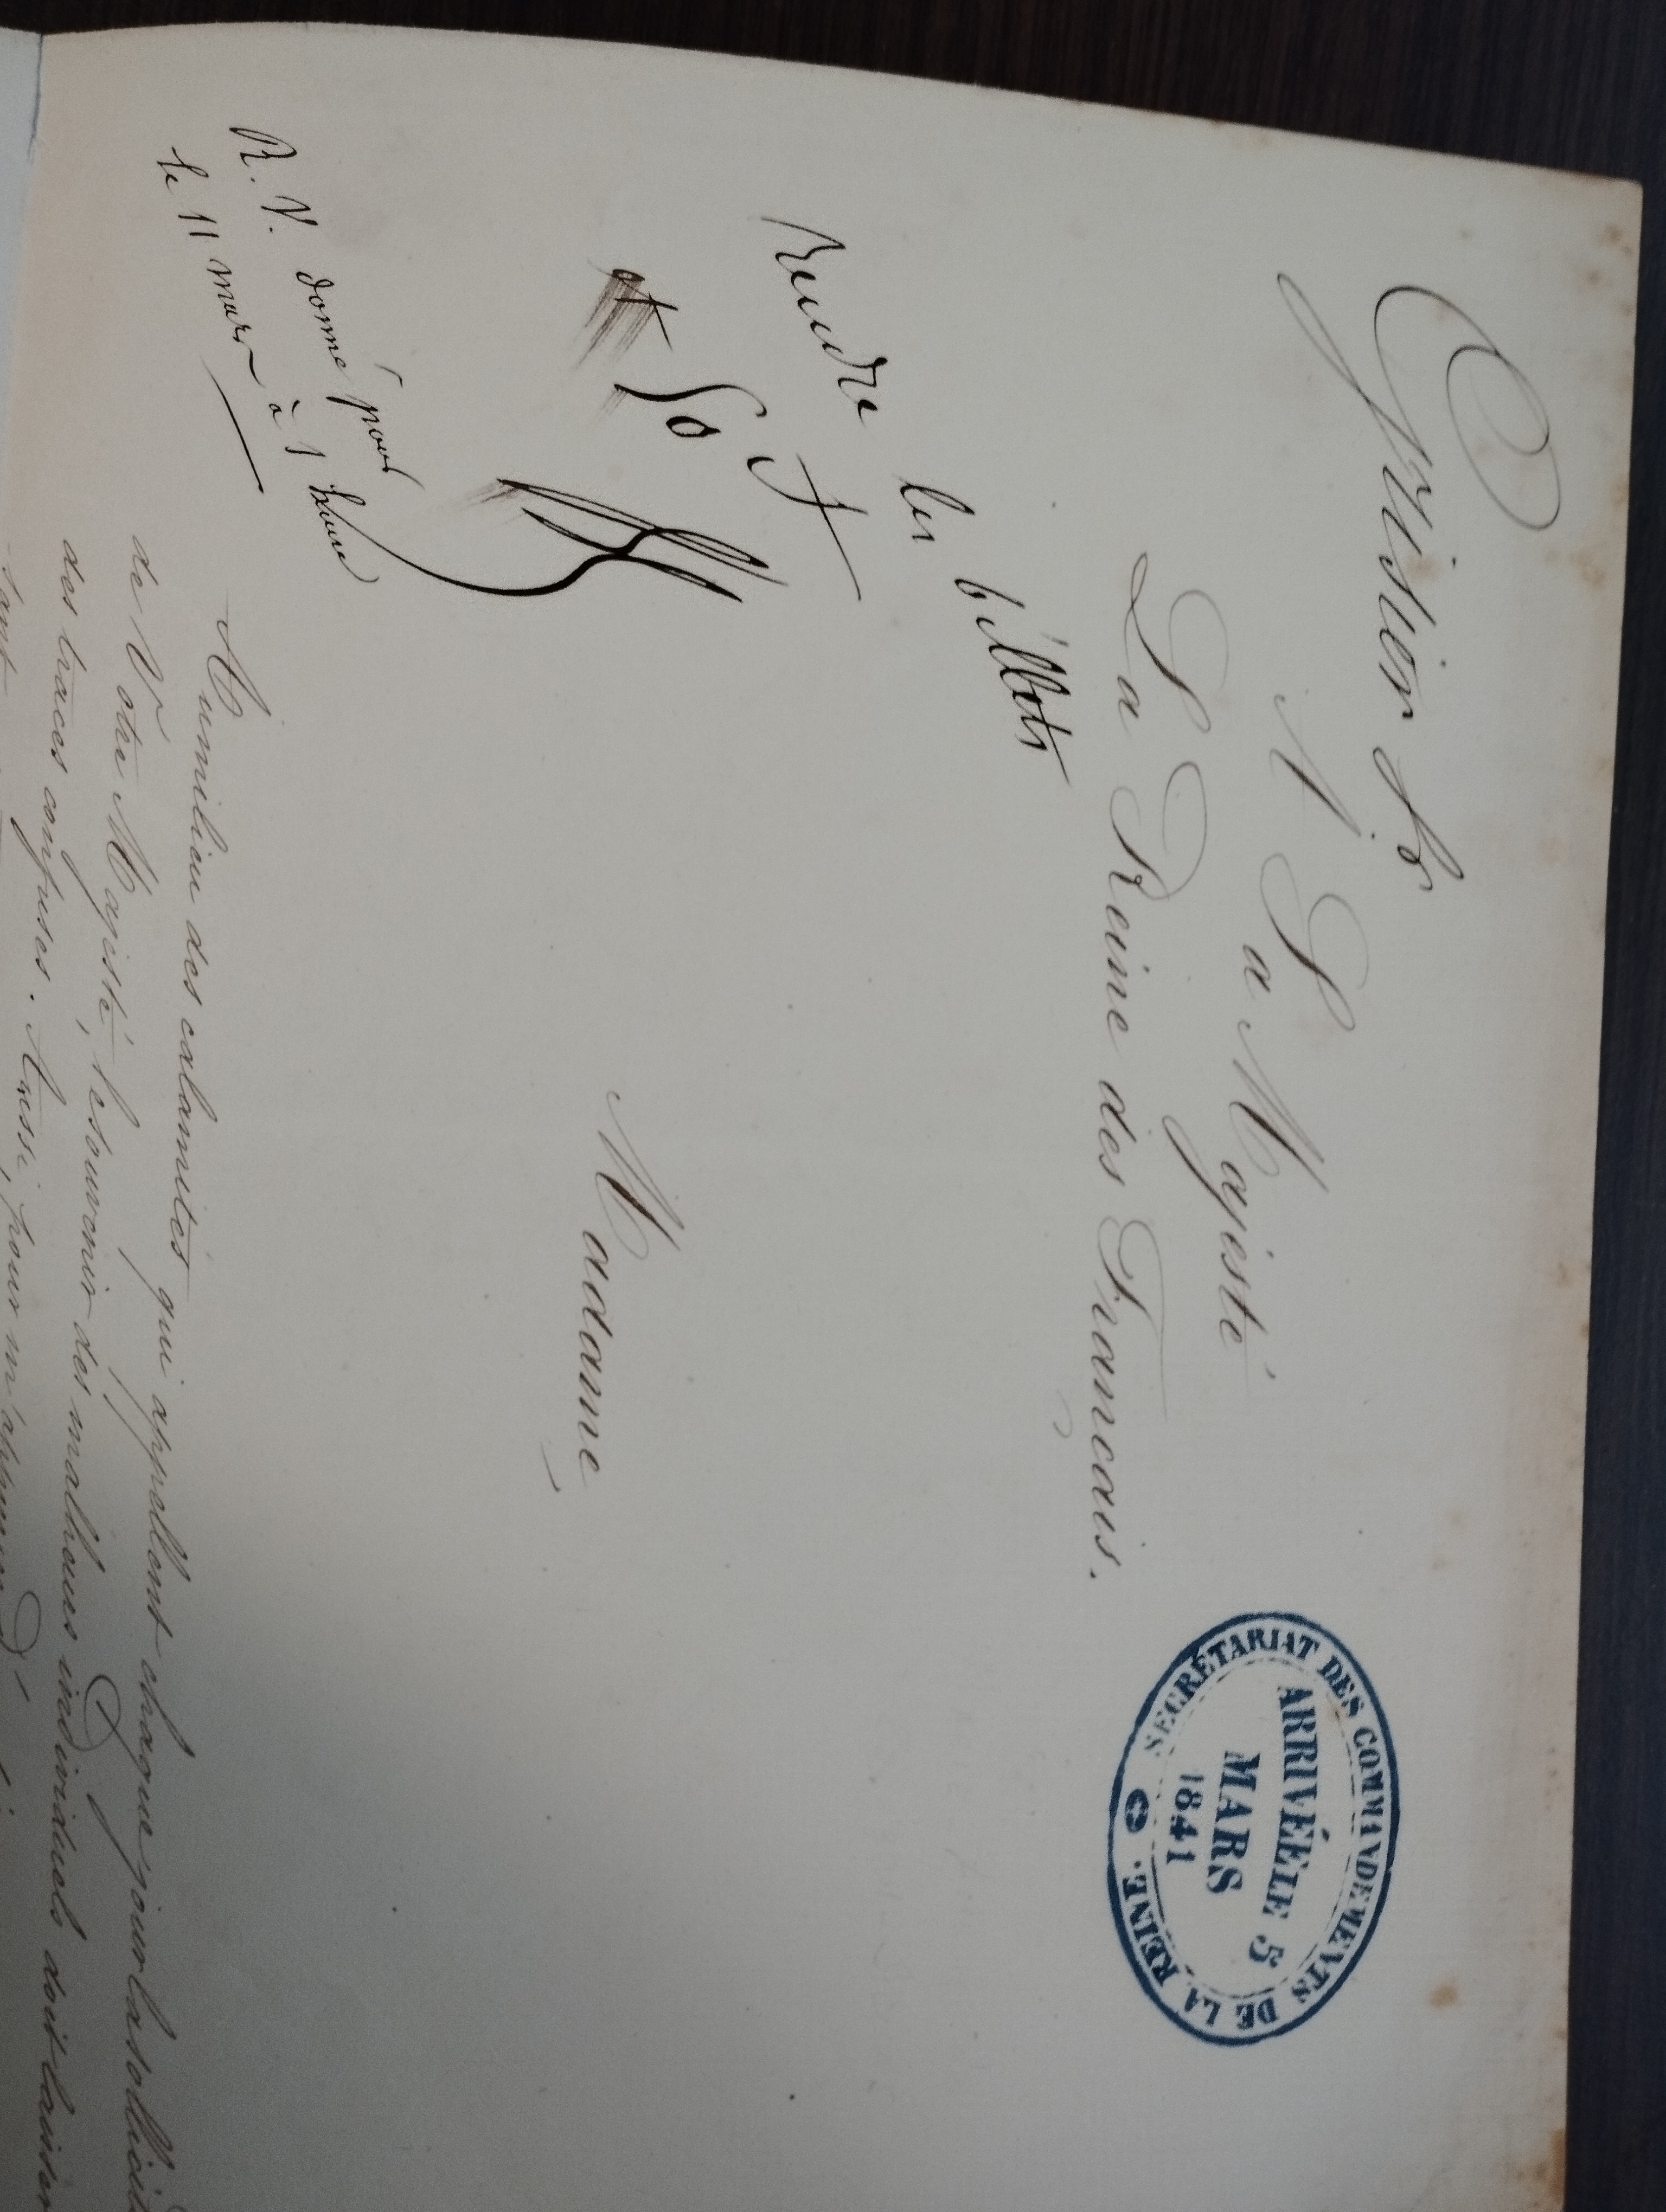 Grisier fs
A Sa Majesté
La Reine des Français.
SECRÉTARIAT DES COMMANDEMENTS DE LA REINE.
ARRIVÉE LE 5
MARS
1841
Rendre les billets
et 50 f
R. V. donné pour
le 11 mars à 1 heure
Madame,
Au milieu des calamités qui appellent chaque jour la sollicitude
de Votre Majesté, le souvenir des malheurs individuels doit laisser
des traces confuses. Aussi, pour